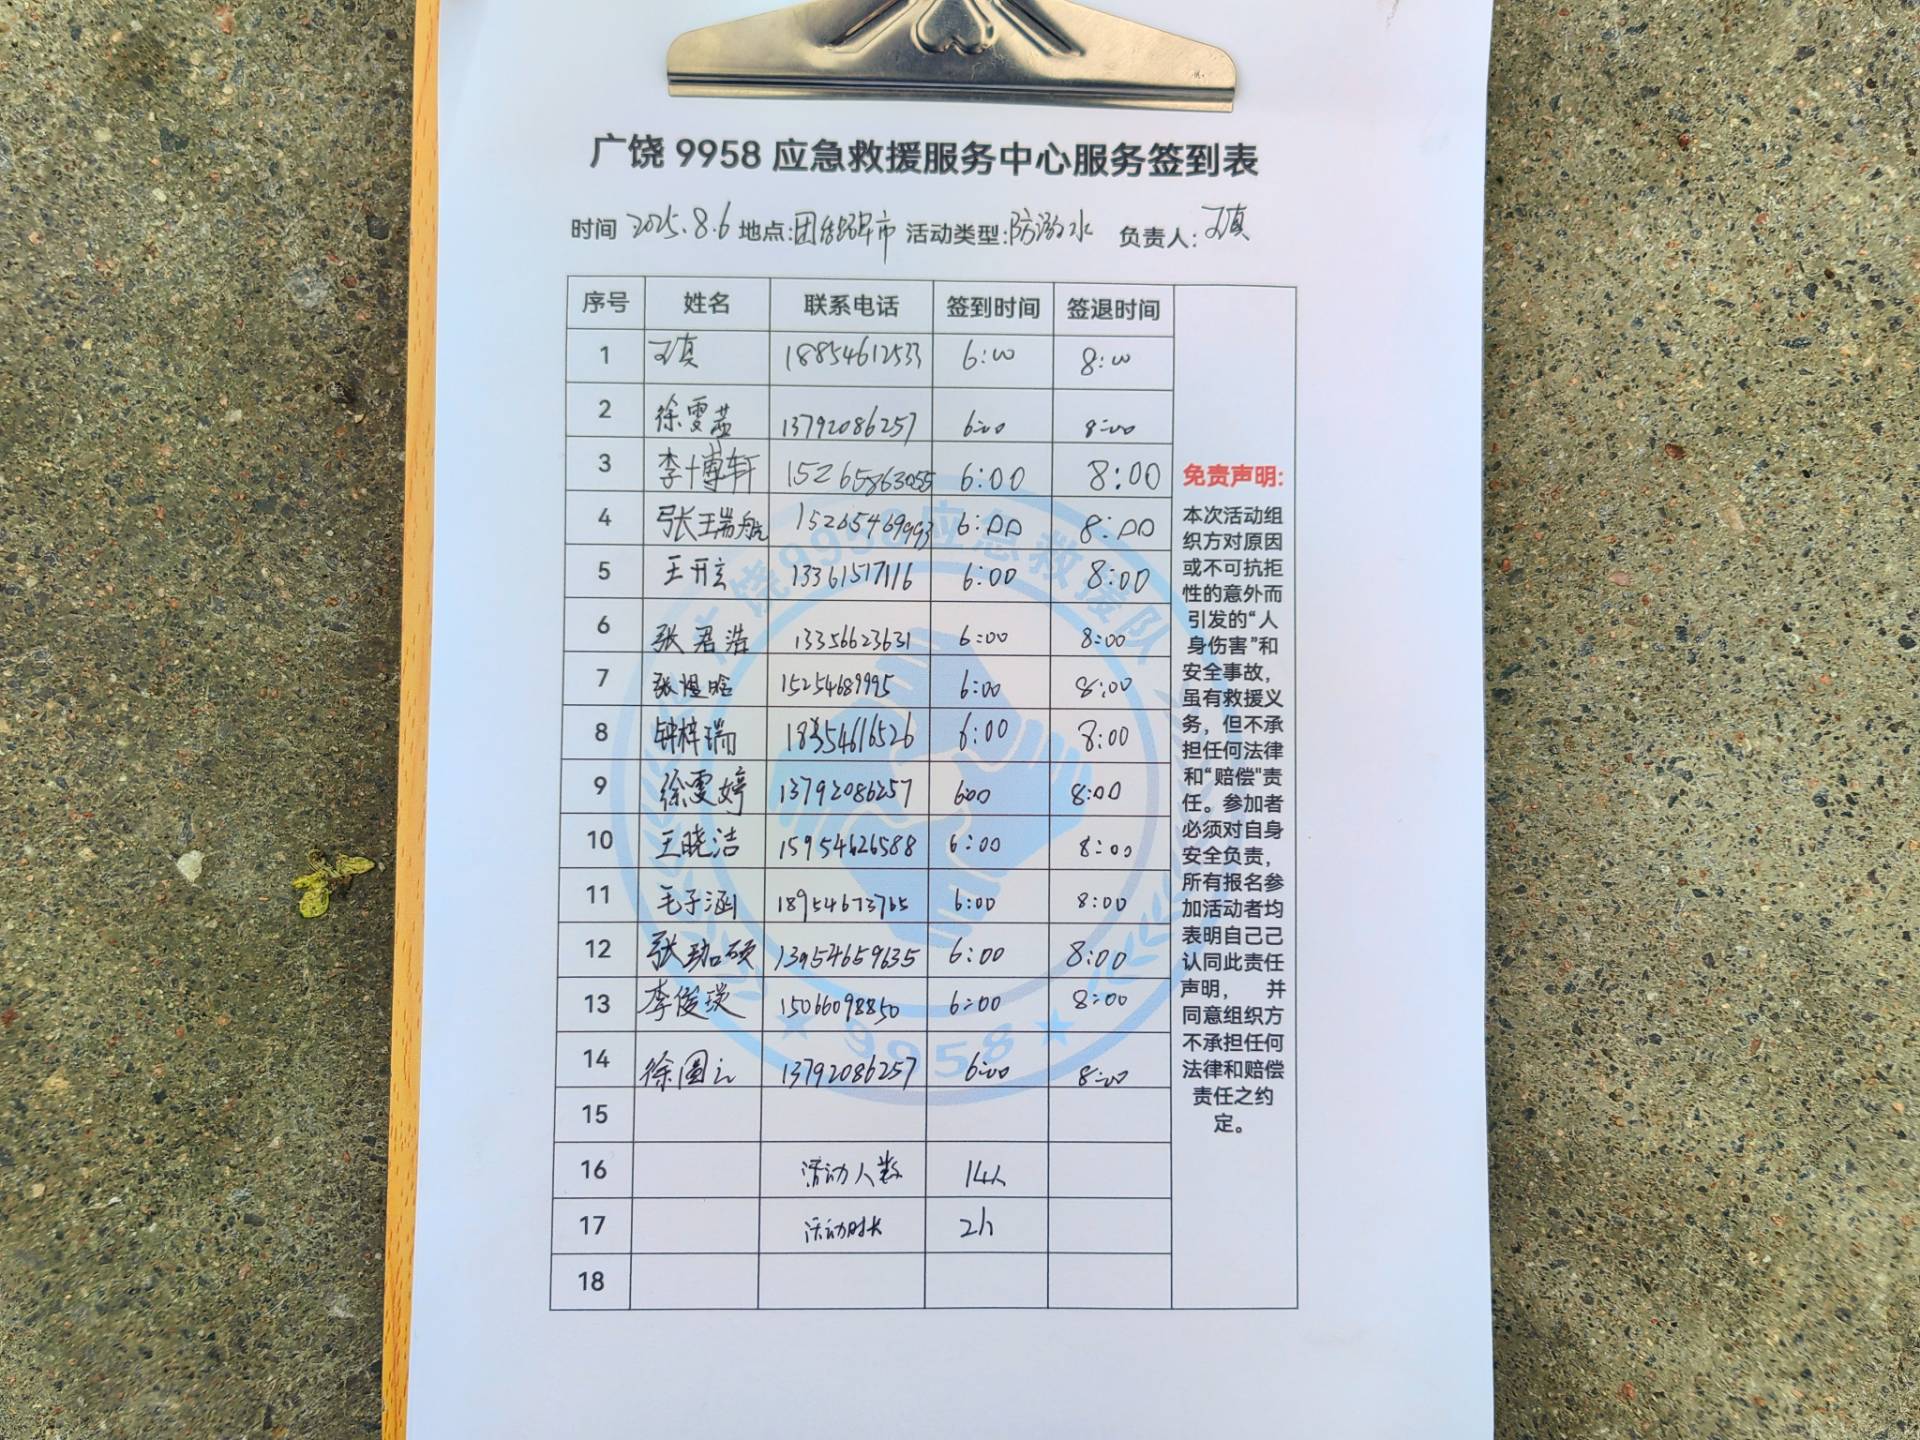 广饶 9958 应急救援服务中心服务签到表
时间 2025.8.6 地点:团结路早市 活动类型:防溺水 负责人: 王真
序号 姓名 联系电话 签到时间 签退时间
1 王真 18854612533 6:00 8:00
2 徐雯茹 13792086257 6:00 8:00
3 李博轩 15265863055 6:00 8:00
4 张瑞航 15265469993 6:00 8:00
5 王开玄 13361517116 6:00 8:00
6 张君浩 13356623631 6:00 8:00
7 张煜晗 15254689995 6:00 8:00
8 钟梓瑞 18354616526 6:00 8:00
9 徐雯婷 13792086257 600 8:00
10 王晓洁 15954626588 6:00 8:00
11 毛子涵 18954673765 6:00 8:00
12 张劲硕 13954659635 6:00 8:00
13 李俊瑛 15066098850 6:00 8:00
14 徐圆 13792086257 6:00 8:00
15
16 活动人数 14人
17 活动时长 2h
18
免责声明:
本次活动组
织方对原因
或不可抗拒
性的意外而
引发的“人
身伤害”和
安全事故，
虽有救援义
务，但不承
担任何法律
和“赔偿”责
任。参加者
必须对自身
安全负责，
所有报名参
加活动者均
表明自己己
认同此责任
声明， 并
同意组织方
不承担任何
法律和赔偿
责任之约
定。
广饶9958应急救援队
9958